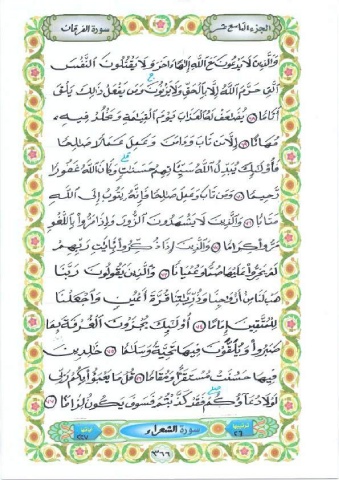 الجزء التاسع عشر
سورة الفرقان
وَالَّذِينَ لَا يَدْعُونَ مَعَ اللَّهِ إِلَٰهًا آخَرَ وَلَا يَقْتُلُونَ النَّفْسَ
الَّتِي حَرَّمَ اللَّهُ إِلَّا بِالْحَقِّ وَلَا يَزْنُونَ وَمَن يَفْعَلْ ذَٰلِكَ يَلْقَ
أَثَامًا ٦٨ يُضَاعَفْ لَهُ الْعَذَابُ يَوْمَ الْقِيَامَةِ وَيَخْلُدْ فِيهِ
مُهَانًا ٦٩ إِلَّا مَن تَابَ وَآمَنَ وَعَمِلَ عَمَلًا صَالِحًا
فَأُولَٰئِكَ يُبَدِّلُ اللَّهُ سَيِّئَاتِهِمْ حَسَنَاتٍ وَكَانَ اللَّهُ غَفُورًا
رَّحِيمًا ٧٠ وَمَن تَابَ وَعَمِلَ صَالِحًا فَإِنَّهُ يَتُوبُ إِلَى اللَّهِ
مَتَابًا ٧١ وَالَّذِينَ لَا يَشْهَدُونَ الزُّورَ وَإِذَا مَرُّوا بِاللَّغْوِ
مَرُّوا كِرَامًا ٧٢ وَالَّذِينَ إِذَا ذُكِّرُوا بِآيَاتِ رَبِّهِمْ
لَمْ يَخِرُّوا عَلَيْهَا صُمًّا وَعُمْيَانًا ٧٣ وَالَّذِينَ يَقُولُونَ رَبَّنَا
هَبْ لَنَا مِنْ أَزْوَاجِنَا وَذُرِّيَّاتِنَا قُرَّةَ أَعْيُنٍ وَاجْعَلْنَا
لِلْمُتَّقِينَ إِمَامًا ٧٤ أُولَٰئِكَ يُجْزَوْنَ الْغُرْفَةَ بِمَا
صَبَرُوا وَيُلَقَّوْنَ فِيهَا تَحِيَّةً وَسَلَامًا ٧٥ خَالِدِينَ
فِيهَا حَسُنَتْ مُسْتَقَرًّا وَمُقَامًا ٧٦ قُلْ مَا يَعْبَأُ بِكُمْ رَبِّي
لَوْلَا دُعَاؤُكُمْ فَقَدْ كَذَّبْتُمْ فَسَوْفَ يَكُونُ لِزَامًا ٧٧
ترتيبها ٢٦
سورة الشعراء
آياتها ٢٢٧
٣٦٦